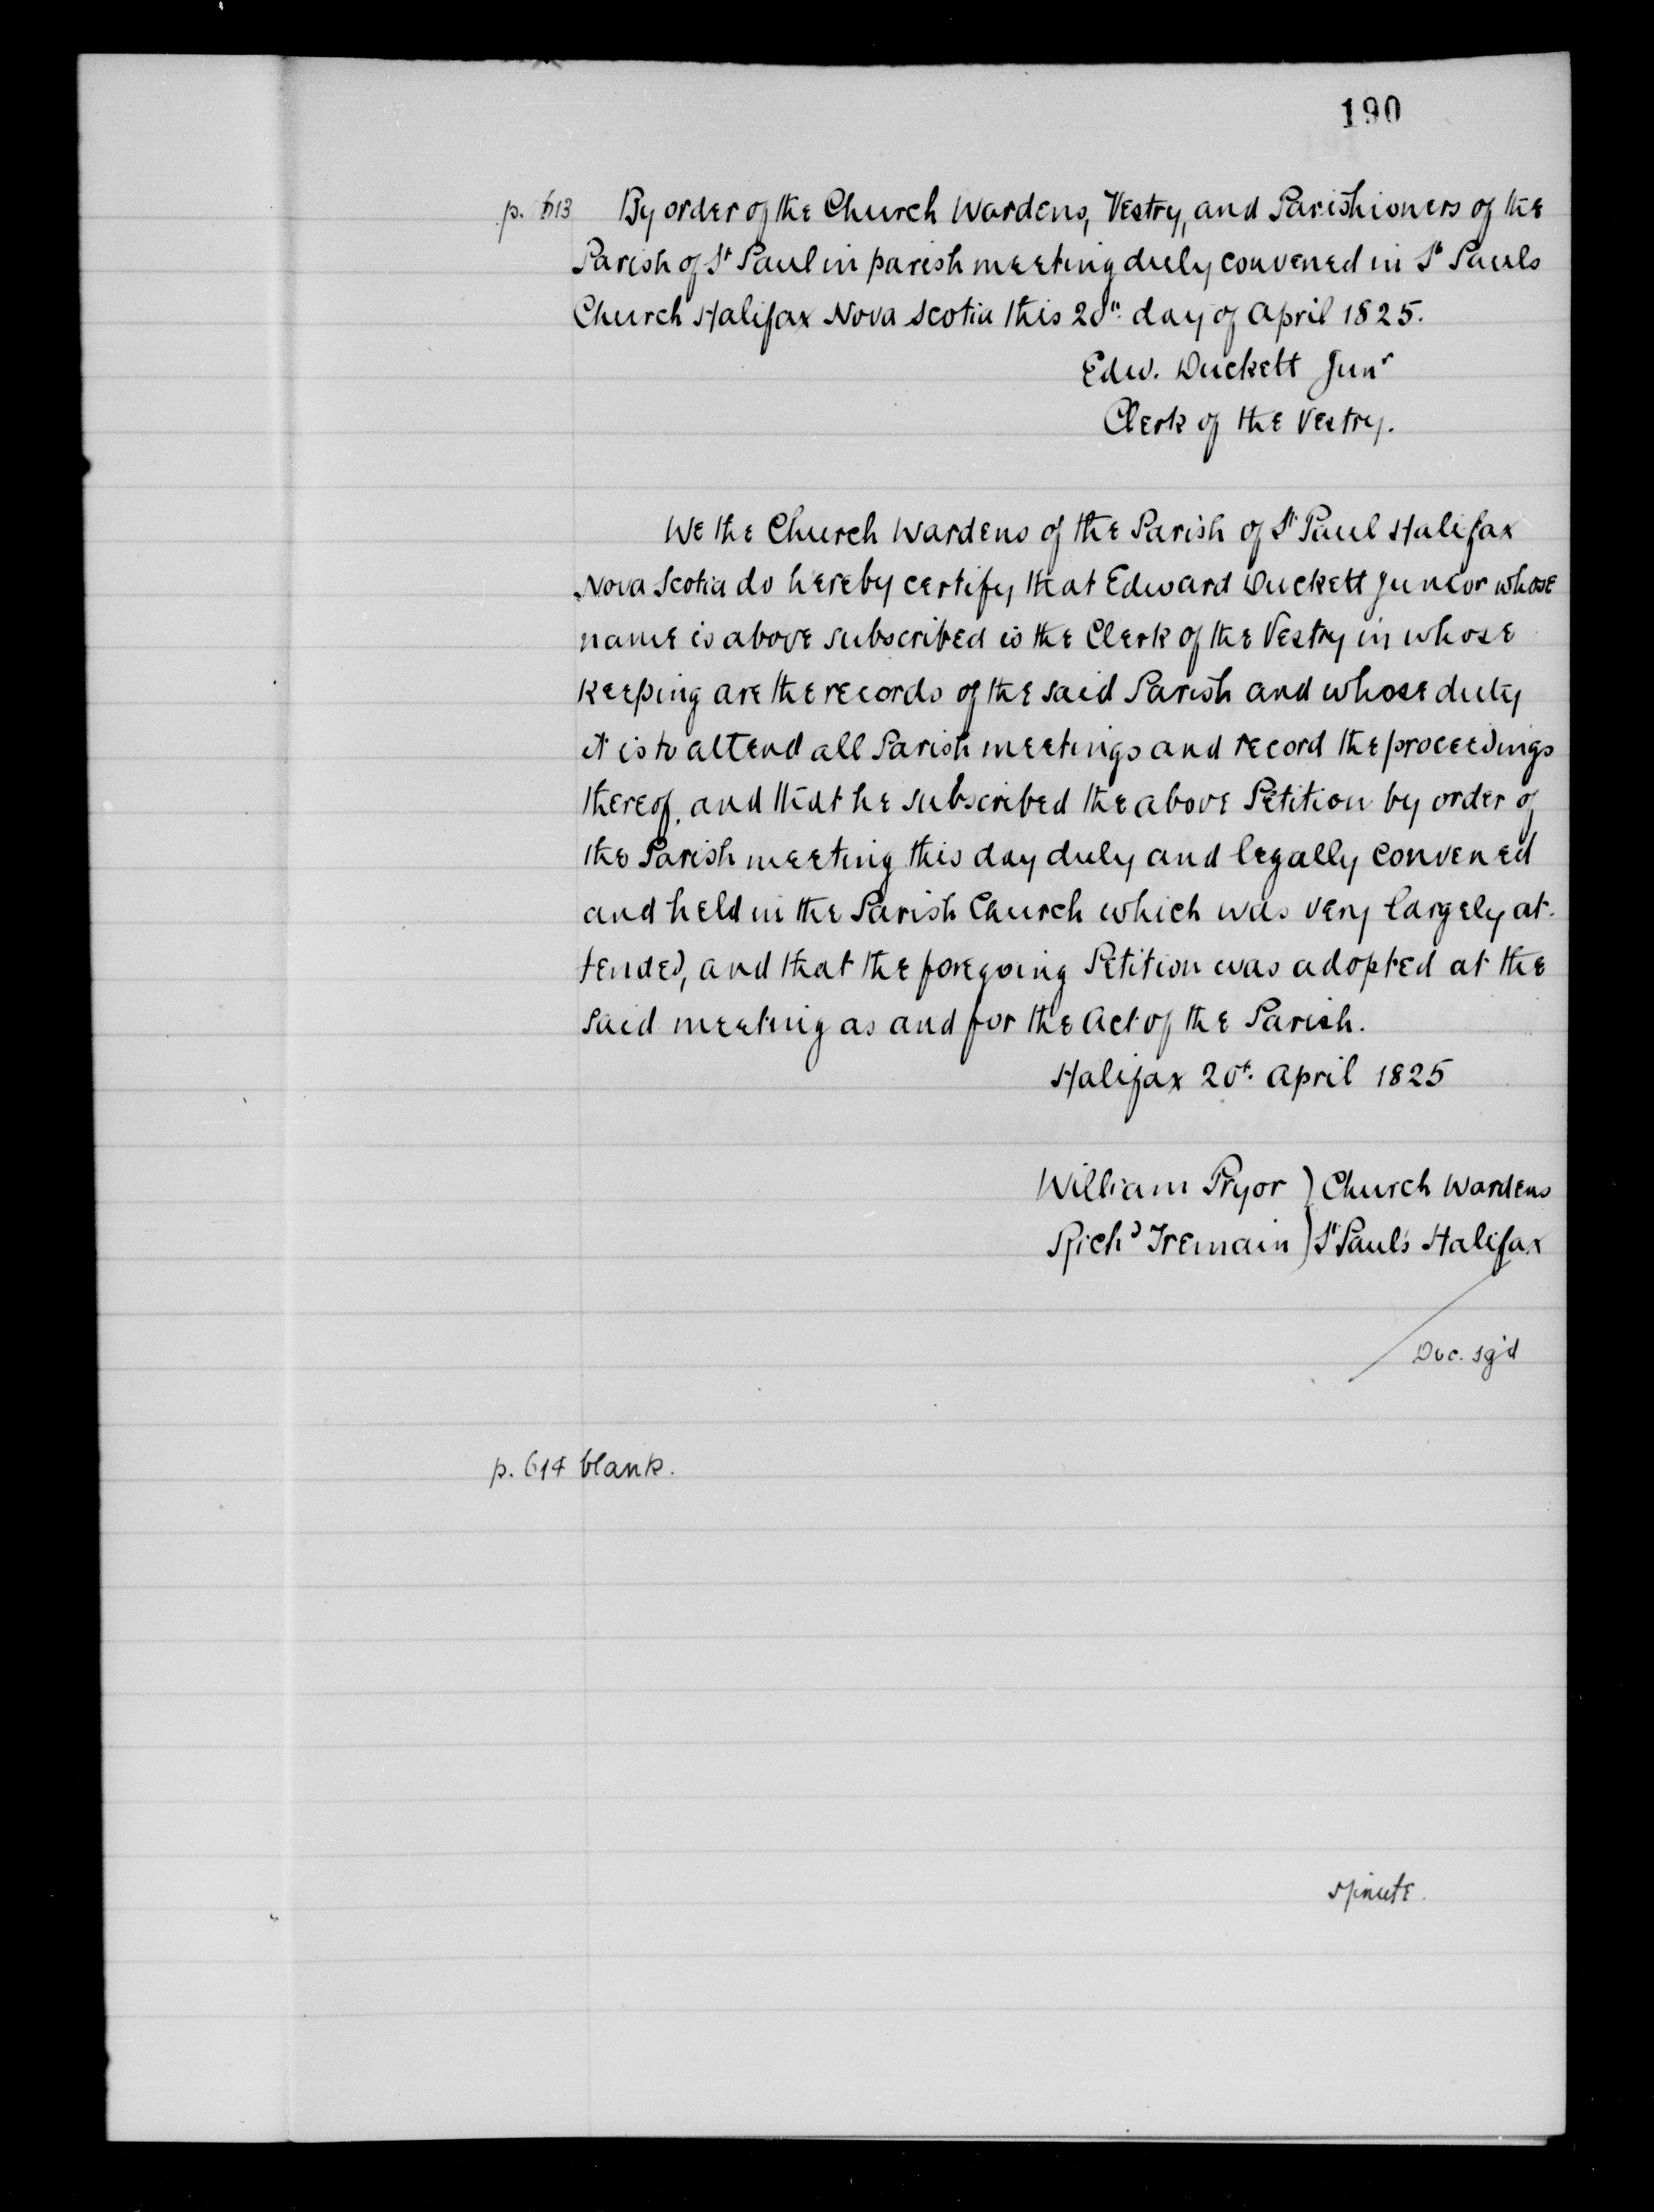 190
p. 613 By order of the Church Wardens, Vestry, and Parishioners of the
Parish of St Paul in parish meeting duly convened in St Pauls
Church Halifax Nova Scotia this 20th day of April 1825.
Edw. Duckett Junr
Clerk of the Vestry.
We the Church Wardens of the Parish of St Paul Halifax
Nova Scotia do hereby certify that Edward Duckett Junior whose
name is above subscribed is the Clerk of the Vestry in whose
keeping are the records of the said Parish and whose duty
it is to attend all Parish meetings and record the proceedings
thereof, and that he subscribed the above Petition by order of
the Parish meeting this day duly and legally convened
and held in the Parish Church which was very largely at-
tended, and that the foregoing Petition was adopted at the
said meeting as and for the Act of the Parish.
Halifax 20t. April 1825
William Pryor ) Church Wardens
Richd Tremain ) St Paul's Halifax
Doc. sg'd
p. 614 blank.